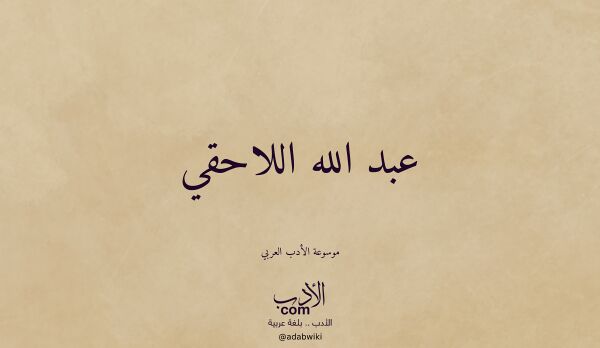 عبد الله اللاحقي
موسوعة الأدب العربي
الأدب
com
الأدب .. بلغة عربية
@adabwiki